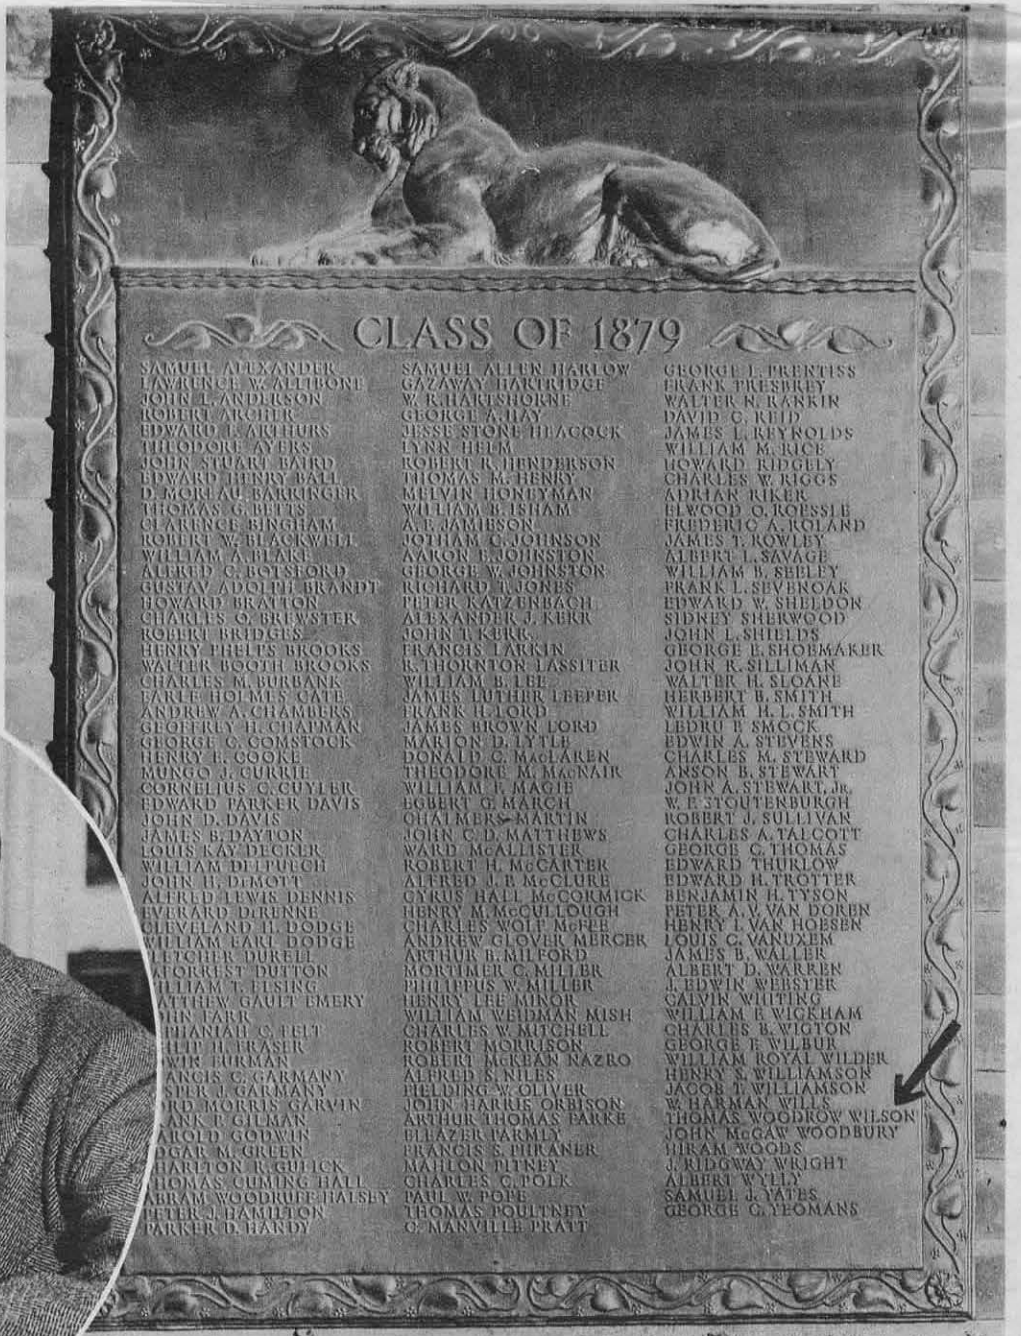 CLASS OF 1879
SAMUEL ALEXANDER
LAWRENCE W. ALLIBONE
JOHN L. ANDERSON
ROBERT ARCHER
EDWARD F. ARTHURS
THEODORE AYERS
JOHN STUART BAIRD
EDWARD HENRY BALL
D. MOREAU BARRINGER
THOMAS G. BETTS
CLARENCE BINGHAM
ROBERT W. BLACKWELL
WILLIAM A. BLAKE
ALFRED C. BOTSFORD
GUSTAV ADOLPH BRANDT
HOWARD BRATTON
CHARLES O. BREWSTER
ROBERT BRIDGES
HENRY PHELPS BROOKS
WALTER BOOTH BROOKS
CHARLES M. BURBANK
EARLE HOLMES CATE
ANDREW A. CHAMBERS
GEOFFREY H. CHAPMAN
GEORGE C. COMSTOCK
HENRY E. COOKE
MUNGO J. CURRIE
CORNELIUS C. CUYLER
EDWARD PARKER DAVIS
JOHN D. DAVIS
JAMES B. DAYTON
LOUIS KAY DECKER
WILLIAM DELPUECH
JOHN H. DEMOTT
ALFRED LEWIS DENNIS
EVERARD DERENNE
CLEVELAND H. DODGE
WILLIAM EARL DODGE
LETCHER DURELL
FORREST DUTTON
ILLIAM T. ELSING
ATTHEW GAULT EMERY
HN FARR
PHANIAH C. FELT
ILIP H. FRASER
WIN FURMAN
ANCIS C. GARMANY
SPER J. GARMANY
RD MORRIS GARVIN
ANK P. GILMAN
AROLD GODWIN
DGAR M. GREEN
HARLTON R. GULICK
THOMAS CUMING HALL
ABRAM WOODRUFF HALSEY
PETER J. HAMILTON
PARKER D. HANDY
SAMUEL ALLEN HARLOW
GAZAWAY HARTRIDGE
W. R. HARTSHORNE
GEORGE A. HAY
JESSE STONE HEACOCK
LYNN HELM
ROBERT R. HENDERSON
THOMAS M. HENRY
MELVIN HONEYMAN
WILLIAM B. ISHAM
A. F. JAMIESON
JOTHAM C. JOHNSON
AARON F. JOHNSTON
GEORGE W. JOHNSTON
RICHARD T. JONES
PETER KATZENBACH
ALEXANDER J. KERR
JOHN T. KERR
FRANCIS LARKIN
R. THORNTON LASSITER
WILLIAM B. LEE
JAMES LUTHER LEEPER
FRANK H. LORD
JAMES BROWN LORD
MARION D. LYTLE
DONALD C. MACLAREN
THEODORE M. MACNAIR
WILLIAM F. MAGIE
EGBERT G. MARCH
CHALMERS MARTIN
JOHN C. D. MATTHEWS
WARD MCALLISTER
ROBERT H. MCCARTER
ALFRED J. P. MCCLURE
CYRUS HALL MCCORMICK
HENRY M. MCCULLOUGH
CHARLES WOLF MCFEE
ANDREW GLOVER MERCER
ARTHUR B. MILFORD
MORTIMER C. MILLER
PHILIPPUS W. MILLER
HENRY LEE MINOR
WILLIAM WEIDMAN MISH
CHARLES W. MITCHELL
ROBERT MORRISON
ROBERT MCKEAN NAZRO
ALFRED S. NILES
FIELDING W. OLIVER
JOHN HARRIS ORBISON
ARTHUR THOMAS PARKE
ELEAZER PARMLY
FRANCIS S. PHRANER
MAHLON PITNEY
CHARLES C. POLK
PAUL W. POPE
THOMAS POULTNEY
C. MANVILLE PRATT
GEORGE L. PRENTISS
FRANK PRESBREY
WALTER N. RANKIN
DAVID C. REID
JAMES L. REYNOLDS
WILLIAM M. RICE
HOWARD RIDGELY
CHARLES W. RIGGS
ADRIAN RIKER
ELWOOD O. ROESSLE
FREDERIC A. ROLAND
JAMES T. ROWLEY
ALBERT L. SAVAGE
WILLIAM B. SEELEY
FRANK L. SEVENOAK
EDWARD W. SHELDON
SIDNEY SHERWOOD
JOHN L. SHIELDS
GEORGE E. SHOEMAKER
JOHN R. SILLIMAN
WALTER H. SLOANE
HERBERT B. SMITH
WILLIAM H. L. SMITH
LEDRU P. SMOCK
EDWIN A. STEVENS
CHARLES M. STEWARD
ANSON B. STEWART
JOHN A. STEWART, JR.
W. F. STOUTENBURGH
ROBERT J. SULLIVAN
CHARLES A. TALCOTT
GEORGE C. THOMAS
EDWARD THURLOW
EDWARD H. TROTTER
BENJAMIN H. TYSON
PETER A. V. VAN DOREN
HENRY L. VAN HOESEN
LOUIS C. VANUXEM
JAMES B. WALLER
ALBERT D. WARREN
J. EDWIN WEBSTER
CALVIN WHITING
WILLIAM F. WICKHAM
CHARLES B. WIGTON
GEORGE F. WILBUR
WILLIAM ROYAL WILDER
HENRY S. WILLIAMSON
JACOB T. WILLIAMSON
W. HARMAN WILLS
THOMAS WOODROW WILSON
JOHN MCGAW WOODBURY
HIRAM WOODS
J. RIDGWAY WRIGHT
ALBERT WYLLY
SAMUEL J. YATES
GEORGE C. YEOMANS